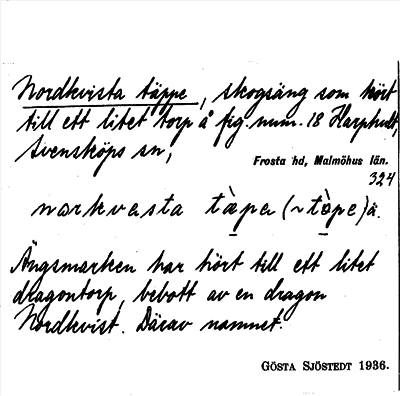 Nordkvista täppe, skogsäng som hört
till ett litet torp å fig. num. 18 Harphult,
Svensköps sn,
Frosta hd, Malmöhus län.
324
norkvesta tæ̀pa (~tæ̀pe) ä.
Ängsmarken har hört till ett litet
dragontorp, bebott av en dragon
Nordkvist. Därav namnet.
GÖSTA SJÖSTEDT 1936.